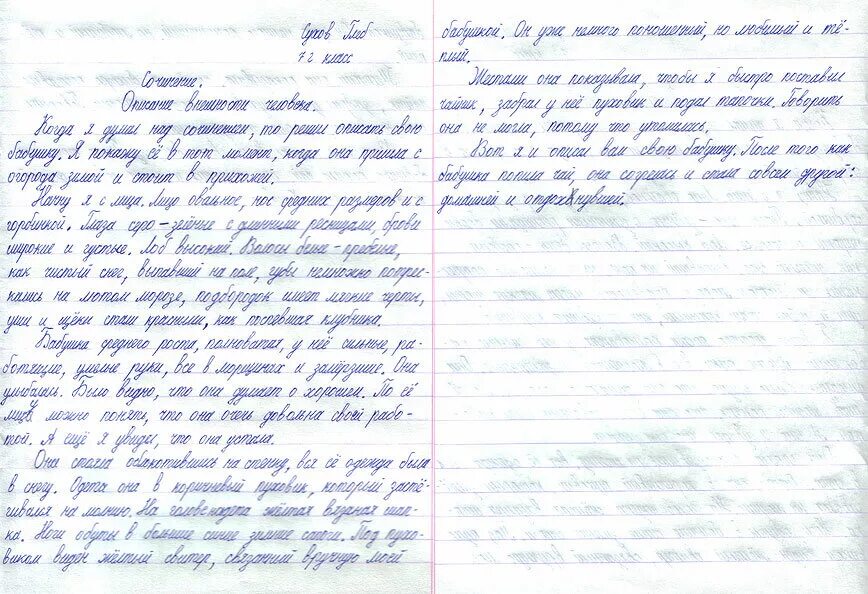 Сухов Глеб
7 г класс
Сочинение.
Описание внешности человека.
Когда я думал над сочинением, то решил описать свою
бабушку. Я покажу её в тот момент, когда она пришла с
огорода зимой и стоит в прихожей.
Начну я с лица. Лицо овальное, нос средних размеров и с
горбинкой. Глаза серо-зелёные с длинными ресницами, брови
широкие и густые. Лоб высокий. Волосы белые-пребелые,
как чистый снег, выпавший на поле, губы немножко потрес-
кались на лютом морозе, подбородок имеет мягкие черты,
уши и щёки стали красными, как поспевшая клубника.
Бабушка среднего роста, полноватая, у неё сильные, ра-
ботящие, умелые руки, все в морщинах и замёрзшие. Она
улыбалась. Было видно, что она думает о хорошем. По её
лицу можно понять, что она очень довольна своей рабо-
той. А ещё я увидел, что она устала.
Она стояла облакотившись на стенку, вся её одежда была
в снегу. Одета она в коричневый пуховик, который застё-
гивался на молнию. На голове надета жёлтая вязаная шап-
ка. Ноги обуты в большие синие зимние сапоги. Под пухо-
виком виден жёлтый свитер, связанный вручную моей
бабушкой. Он уже немного поношенный, но любимый и тё-
плый.
Жестами она показывала, чтобы я быстро поставил
чайник, забрал у неё пуховик и подал тапочки. Говорить
она не могла, потому что утомилась.
Вот я и описал вам свою бабушку. После того как
бабушка попила чай, она согрелась и стала совсем другой:
домашней и отдохнувшей.